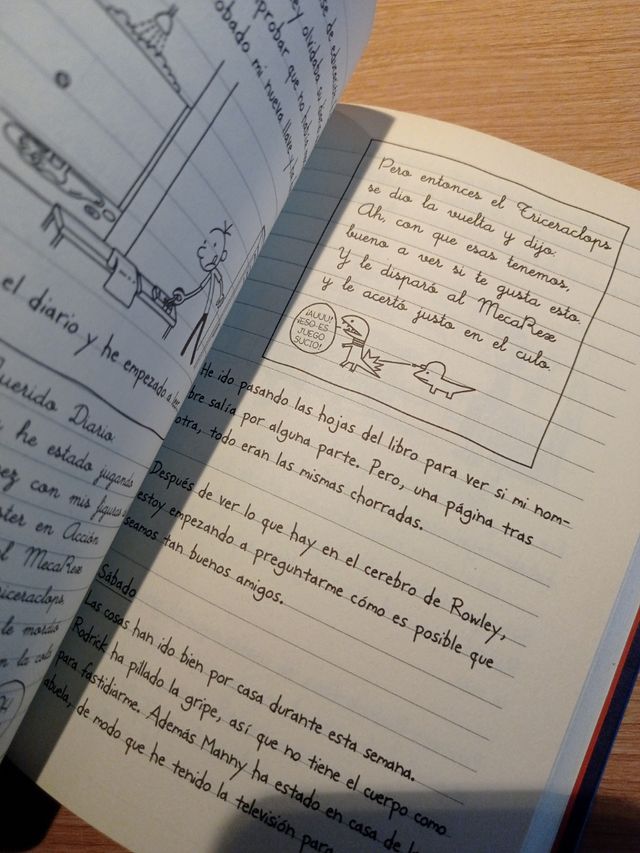 se de educac
ey olvidaba su
probar que no hab
obado mi nueva llave, y
el diario y he empezado a leer
uerido Diario:
he estado jugando
ez con mis figuras
ster en Acción
l MecaRex
riceraclops
le mordió
n la cola
Pero entonces el Triceraclops
se dio la vuelta y dijo:
Ah, con que esas tenemos,
bueno a ver si te gusta esto.
Y le disparó al MecaRex
y le acertó justo en el culo.
¡AUUU!
¡ESO ES
JUEGO
SUCIO!
He ido pasando las hojas del libro para ver si mi nom-
bre salía por alguna parte. Pero, una página tras
otra, todo eran las mismas chorradas.
Después de ver lo que hay en el cerebro de Rowley,
estoy empezando a preguntarme cómo es posible que
seamos tan buenos amigos.
Sábado
Las cosas han ido bien por casa durante esta semana.
Rodrick ha pillado la gripe, así que no tiene el cuerpo como
para fastidiarme. Además Manny ha estado en casa de la
abuela, de modo que he tenido la televisión para